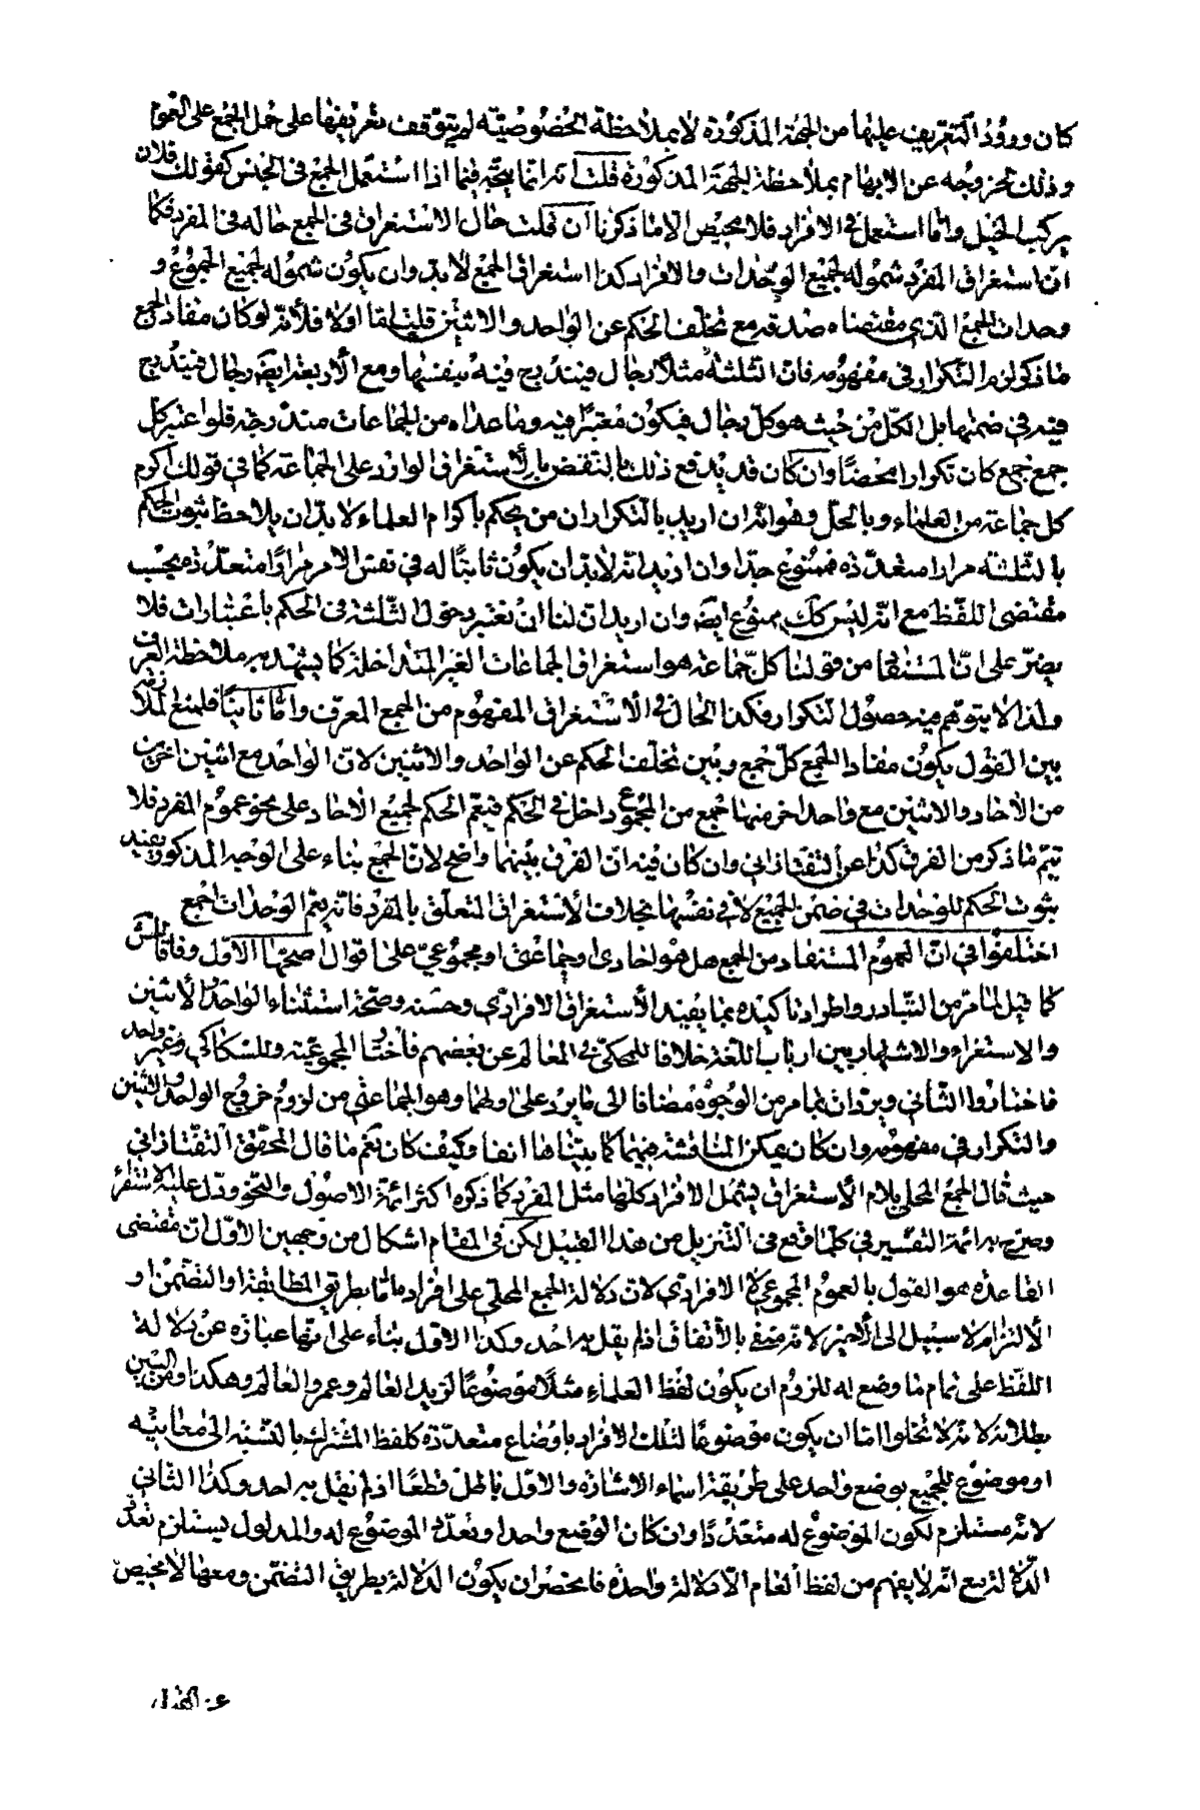 كان وورود التعريف عليها من الجهة المذكورة لا بملاحظة الخصوصيّة لم يتوقف تعريفها على حمل الجمع على العموم
وذلك لخروجه عن الابهام بملاحظة الجهة المذكورة قلت انه انما يتجه فيما اذا استعمل الجمع فى الجنس كقولك فلان
يركب الخيل وامّا اذا استعمل فى الافراد فلا محيص الا ما ذكرنا ان قلت حال الاستغراق فى الجمع حاله فى المفرد فكما
ان استغراق المفرد شموله لجميع الوحدات والافراد كذا استغراق الجمع لا بد وان يكون شموله لجميع الجموع و
وحدات الجمع الذى مقتضاه صدقه مع تخلّف الحكم عن الواحد والاثنين قلت امّا اولا فلانّه لو كان مفاد الجمع
ما ذكر لزم التكرار فى مفهومه فانّ الثلثة مثلا رجال فيندرج فيه بنفسها ومع الاربعة ايضا رجال فيندرج
فيه فى ضمنها بل الكلّ من حيث هو كلّ رجال فيكون معتبرا فيه وما عداه من الجماعات مندرجة فلو اعتبر كل
جمع جمع كان تكرارا محضا وان كان قد يدفع ذلك بالنقض بالاستغراق الوارد على الجماعة كما فى قولك اكرم
كل جماعة من العلماء وبالحلّ وهو انه ان اريد بالتكرار ان من يحكم باكرام العلماء لا بد ان يلاحظ ثبوت الحكم
بالثلثة مرارا متعدّدة فممنوع جدّا وان اريد انه لا بد ان يكون ثابتا له فى نفس الامر مرارا متعدّدة بحسب
مقتضى اللفظ مع انه ليس كك ممنوع ايضا وان اريد ان لنا ان نعتبر دخول الثلثة فى الحكم باعتبارات فلا
يضرّ على انّ المستفاد من قولنا كلّ جماعة هو استغراق الجماعات الغير المتداخلة كما يشهد به ملاحظة العرف
ولذا لا يتوهم فيه حصول التكرار فكذا الحال فى الاستغراق المفهوم من الجمع المعرف وامّا ثانيا فلمنع الملازمة
بين القول بكون مفاد الجمع كلّ جمع وبين تخلّف الحكم عن الواحد والاثنين لانّ الواحد مع اثنين اخرين
من الاحاد والاثنين مع واحد اخر منها جمع من الجموع داخل فى الحكم فيعم الحكم لجميع الاحاد على نحو عموم المفرد فلا
يتمّ ما ذكر من الفرق كذا عن التفتازانى وان كان فيه انّ الفرق بينهما واضح لانّ الجمع بناء على الوجه المذكور يفيد
ثبوت الحكم للوحدات فى ضمن الجميع لا فى نفسها بخلاف الاستغراق المتعلّق بالمفرد فانّه يعمّ الوحدات الجمع
اختلفوا فى انّ العموم المستفاد من الجمع هل هو احادى او جماعتى او مجموعىّ على اقوال اصحّها الاوّل وفاقا
كما قيل لما مرّ من التبادر واطراد تاكيده بما يفيد الاستغراق الافرادى وحسنه وصحّة استثناء الواحد والاثنين
والاستقراء والاشهار بين ارباب اللغة خلافا للمحكى فى المعالم عن بعضهم فاختار المجموعيّة وللسكاكى وغير واحد
فاختاروا الثانى ويردان بما مر من الوجوه مضافا الى ما يرد على اولهما وهو الجماعتى من لزوم خروج الواحد والاثنين
والتكرار فى مفهومه وان كان يمكن المناقشة فيهما كما بيّنّاها انفا وكيف كان نعم ما قال المحقّق التفتازانى
حيث قال الجمع المحلى بلام الاستغراق يشمل الافراد كلها مثل المفرد كما ذكره اكثر ائمة الاصول والنحو ودلّ عليه الاستقراء
وصرّح به ائمة التفسير فى كلّ ما وقع فى التنزيل من هذا القبيل لكن فى المقام اشكال من وجهين الاوّل ان مقتضى
القاعدة هو القول بالعموم المجموعى لا الافرادى لانّ دلالة الجمع المحلى على افراده امّا بطريق المطابقة او التضمّن او
الالتزام لا سبيل الى الاخير لانّه منفى بالاتفاق اذ لم يقل به احد وكذا الاوّل بناء على انها عبارة عن دلالة
اللفظ على تمام ما وضع له للزوم ان يكون لفظ العلماء مثلا موضوعا لزيد العالم وعمرو العالم وهكذا ومن البيّن
بطلانه لانّه لا تخلوا امّا ان يكون موضوعا لتلك الافراد باوضاع متعدّدة كلفظ المشترك بالنسبة الى معانيه
او موضوع للجميع بوضع واحد على طريقة اسماء الاشارة والاوّل باطل قطعا اذ لم يقل به احد وكذا الثانى
لانّه مستلزم لكون الموضوع له متعدّدا وان كان الوضع واحدا وتعدّد الموضوع له والمدلول يستلزم تعدّد
الدلالة مع انّه لا يفهم من لفظ العام الّا دلالة واحدة فانحصر ان يكون الدلالة بطريق التضمّن ومعها لا محيص
عن القول